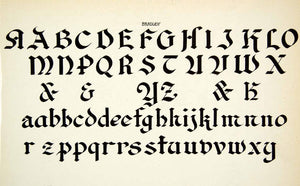 BRADLEY
ABCDEFGHIJKLO
MNPQRSTUVWX
& & YZ. & &
aabcddefghijklmno
rzppqrrsstuuvwxy